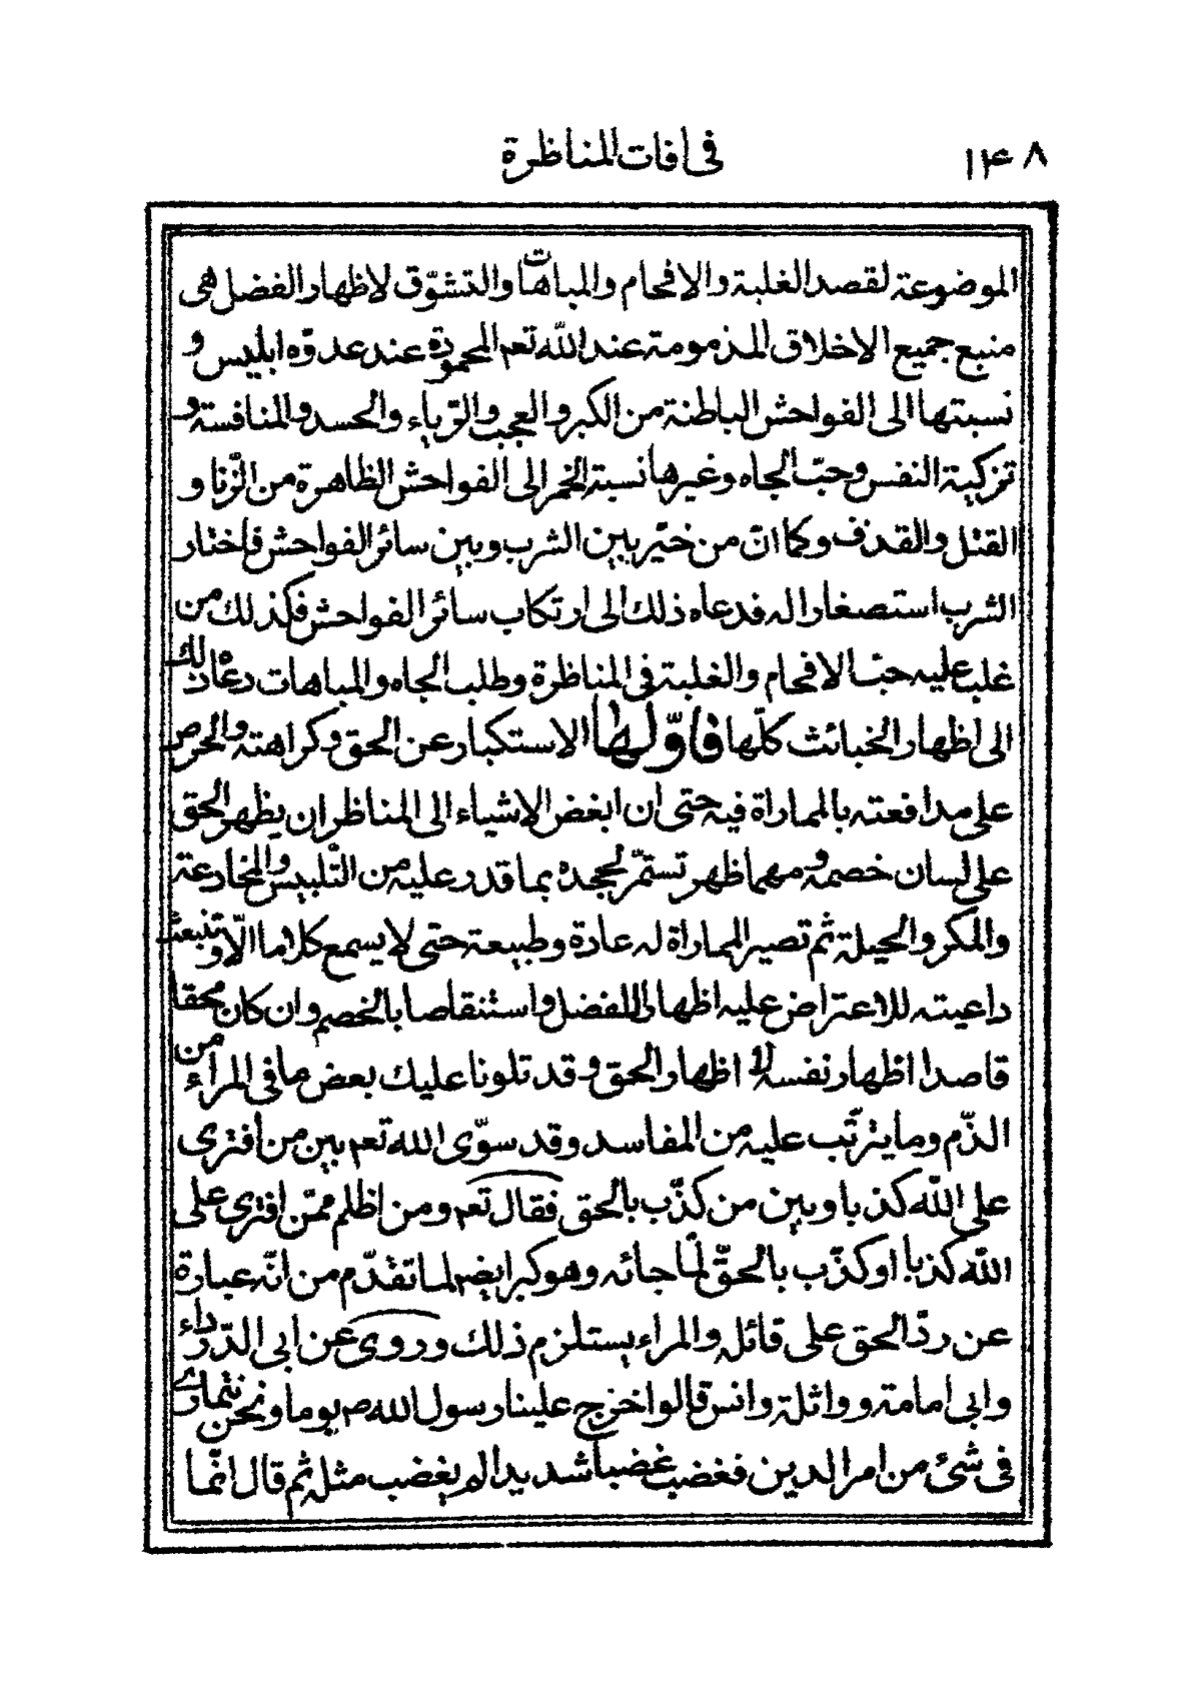 ١٤٨
فى افات المناظرة
الموضوعة لقصد الغلبة والافحام والمباهات والتشوّق لاظهار الفضل هى
منبع جميع الاخلاق المذمومة عند اللّه تعم المحمودة عند عدوّه ابليس و
نسبتها الى الفواحش الباطنة من الكبر والعجب والرّياء والحسد والمنافسة و
تزكية النفس وحبّ الجاه وغيرها نسبة الخمر الى الفواحش الظاهرة من الزّنا و
القتل والقذف وكما انّ من خيّر بين الشرب وبين سائر الفواحش فاختار
الشرب استصغارا له فدعاه ذلك الى ارتكاب سائر الفواحش فكذلك من
غلب عليه حبّ الافحام والغلبة فى المناظرة وطلب الجاه والمباهات دعاه ذلك
الى اظهار الخبائث كلّها فاوّلها الاستكبار عن الحق وكراهته والحرص
على مدافعته بالمماراة فيه حتى ان ابغض الاشياء الى المناظر ان يظهر الحق
على لسان خصمه ومهما ظهر تستمّر لجحده بما قدر عليه من التّلبيس والمخادعة
والمكر والحيلة ثم تصير المماراة له عادة وطبيعة حتى لا يسمع كلاما الّا وتنبعث
داعيته للاعتراض عليه اظهارا للفضل واستنقاصا بالخصم وان كان محقا
قاصدا اظهار نفسه لا اظهار الحق وقد تلونا عليك بعض ما فى المراء من
الذّم وما يترتّب عليه من المفاسد وقد سوّى الله تعم بين من افترى
على اللّه كذبا وبين من كذّب بالحق فقال تعم ومن اظلم ممّن افترى على
اللّه كذبا او كذّب بالحقّ لمّا جائه وهو كبر ايضم لما تقدّم من انّه عبارة
عن ردّ الحق على قائله والمراء يستلزم ذلك وروى عن ابى الدّرداء
وابى امامة وواثلة وانس قالوا خرج علينا رسول الله ص يوما ونحن نتمارى
فى شئ من امر الدين فغضب غضبا شديدا لم يغضب مثله ثم قال انّما